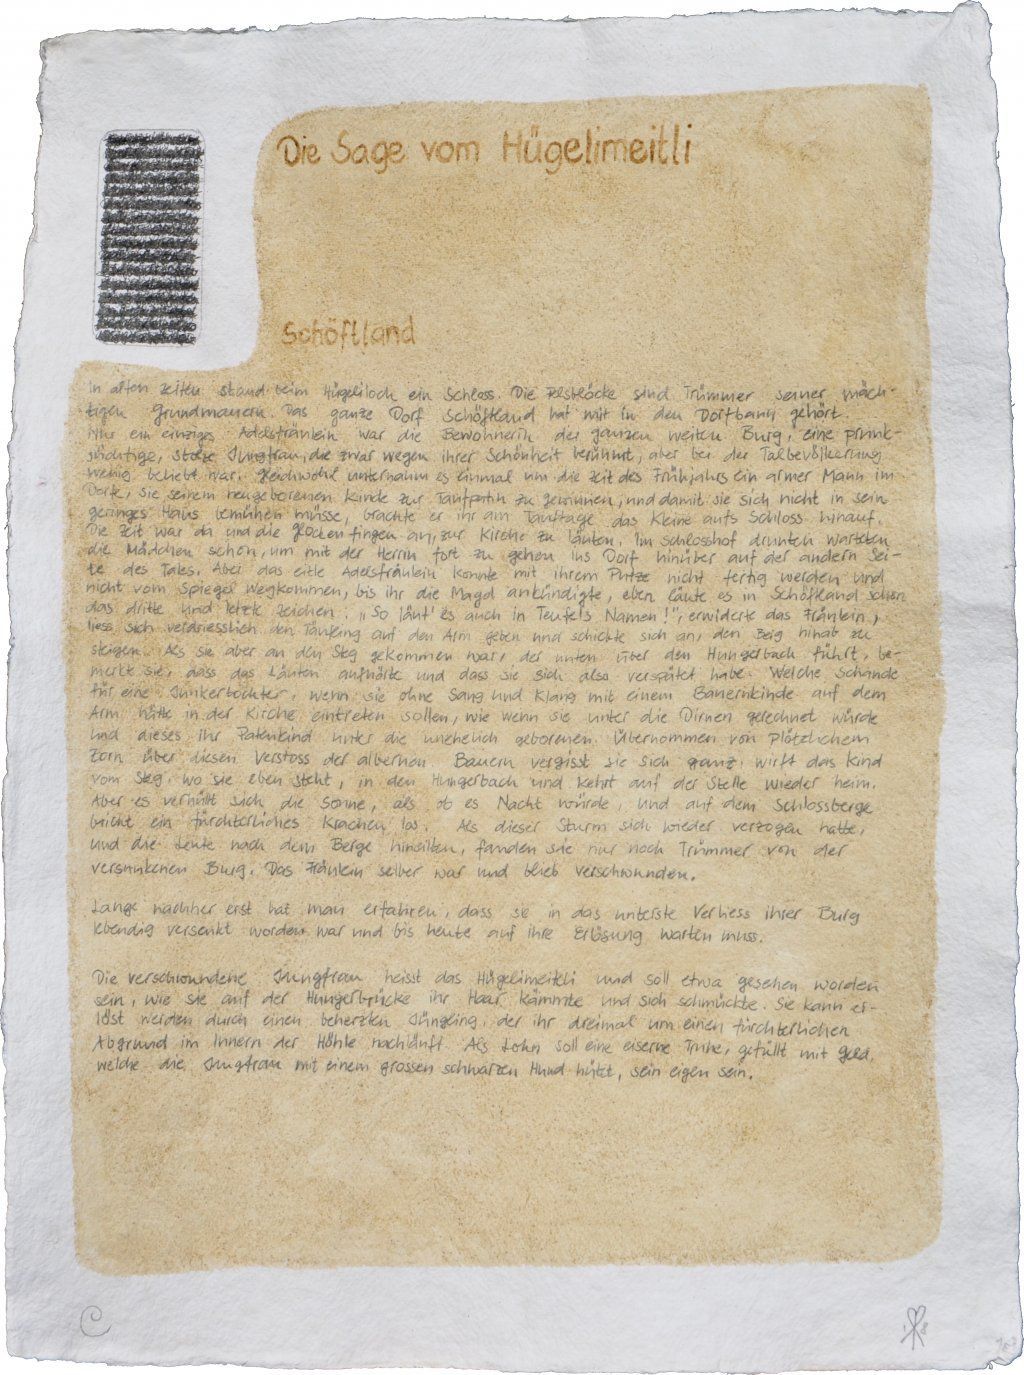 Die Sage vom Hügelimeitli
Schöftland
In alten Zeiten stand beim Hügeliloch ein Schloss. Die Felsblöcke sind Trümmer seiner mäch-
tigen Grundmauern. Das ganze Dorf Schöftland hat mit in den Dorfbann gehört.
Nur ein einziges Adelsfräulein war die Bewohnerin der ganzen weiten Burg, eine prunk-
süchtige, stolze Jungfrau, die zwar wegen ihrer Schönheit berühmt, aber bei der Talbevölkerung
wenig beliebt war. Gleichwohl unternahm es einmal um die Zeit des Frühjahrs ein armer Mann im
Dorfe, sie seinem neugeborenen Kinde zur Taufpatin zu gewinnen, und damit sie sich nicht in sein
geringes Haus bemühen müsse, brachte er ihr am Tauftage das Kleine aufs Schloss hinauf.
Die Zeit war da und die Glocken fingen an, zur Kirche zu läuten. Im Schlosshof drunten warteten
die Mädchen schon, um mit der Herrin fort zu gehen ins Dorf hinüber auf der andern Sei-
te des Tales. Aber das eitle Adelsfräulein konnte mit ihrem Putze nicht fertig werden und
nicht vom Spiegel wegkommen, bis ihr die Magd ankündigte, eben läute es in Schöftland schon
das dritte und letzte Zeichen. „So läut' es auch in Teufels Namen!", erwiderte das Fräulein,
liess sich verdriesslich den Täufling auf den Arm geben und schickte sich an, den Berg hinab zu
steigen. Als sie aber an den Steg gekommen war, der unten über den Hungerbach führt, be-
merkte sie, dass das Läuten aufhörte und dass sie sich also verspätet habe. Welche Schande
für eine Junkertochter, wenn sie ohne Sang und Klang mit einem Bauernkinde auf dem
Arm hätte in der Kirche eintreten sollen, wie wenn sie unter die Dirnen gerechnet würde
und dieses ihr Patenkind unter die unehelich geborenen. Übernommen von plötzlichem
Zorn über diesen Verstoss der albernen Bauern vergisst sie sich ganz, wirft das Kind
vom Steg, wo sie eben steht, in den Hungerbach und kehrt auf der Stelle wieder heim.
Aber es verhüllt sich die Sonne, als ob es Nacht würde, und auf dem Schlossberge
bricht ein fürchterliches Krachen los. Als dieser Sturm sich wieder verzogen hatte,
und die Leute nach dem Berge hineilten, fanden sie nur noch Trümmer von der
versunkenen Burg. Das Fräulein selber war und blieb verschwunden.
Lange nachher erst hat man erfahren, dass sie in das unterste Verliess ihrer Burg
lebendig versenkt worden war und bis heute auf ihre Erlösung warten muss.
Die verschwundene Jungfrau heisst das Hügelimeitli und soll etwa gesehen worden
sein, wie sie auf der Hungerbrücke ihr Haar kämmte und sich schmückte. Sie kann er-
löst werden durch einen beherzten Jüngling, der ihr dreimal um einen fürchterlichen
Abgrund im Innern der Höhle nachläuft. Als Lohn soll eine eiserne Truhe, gefüllt mit Geld,
welche die Jungfrau mit einem grossen schwarzen Hund hütet, sein eigen sein.